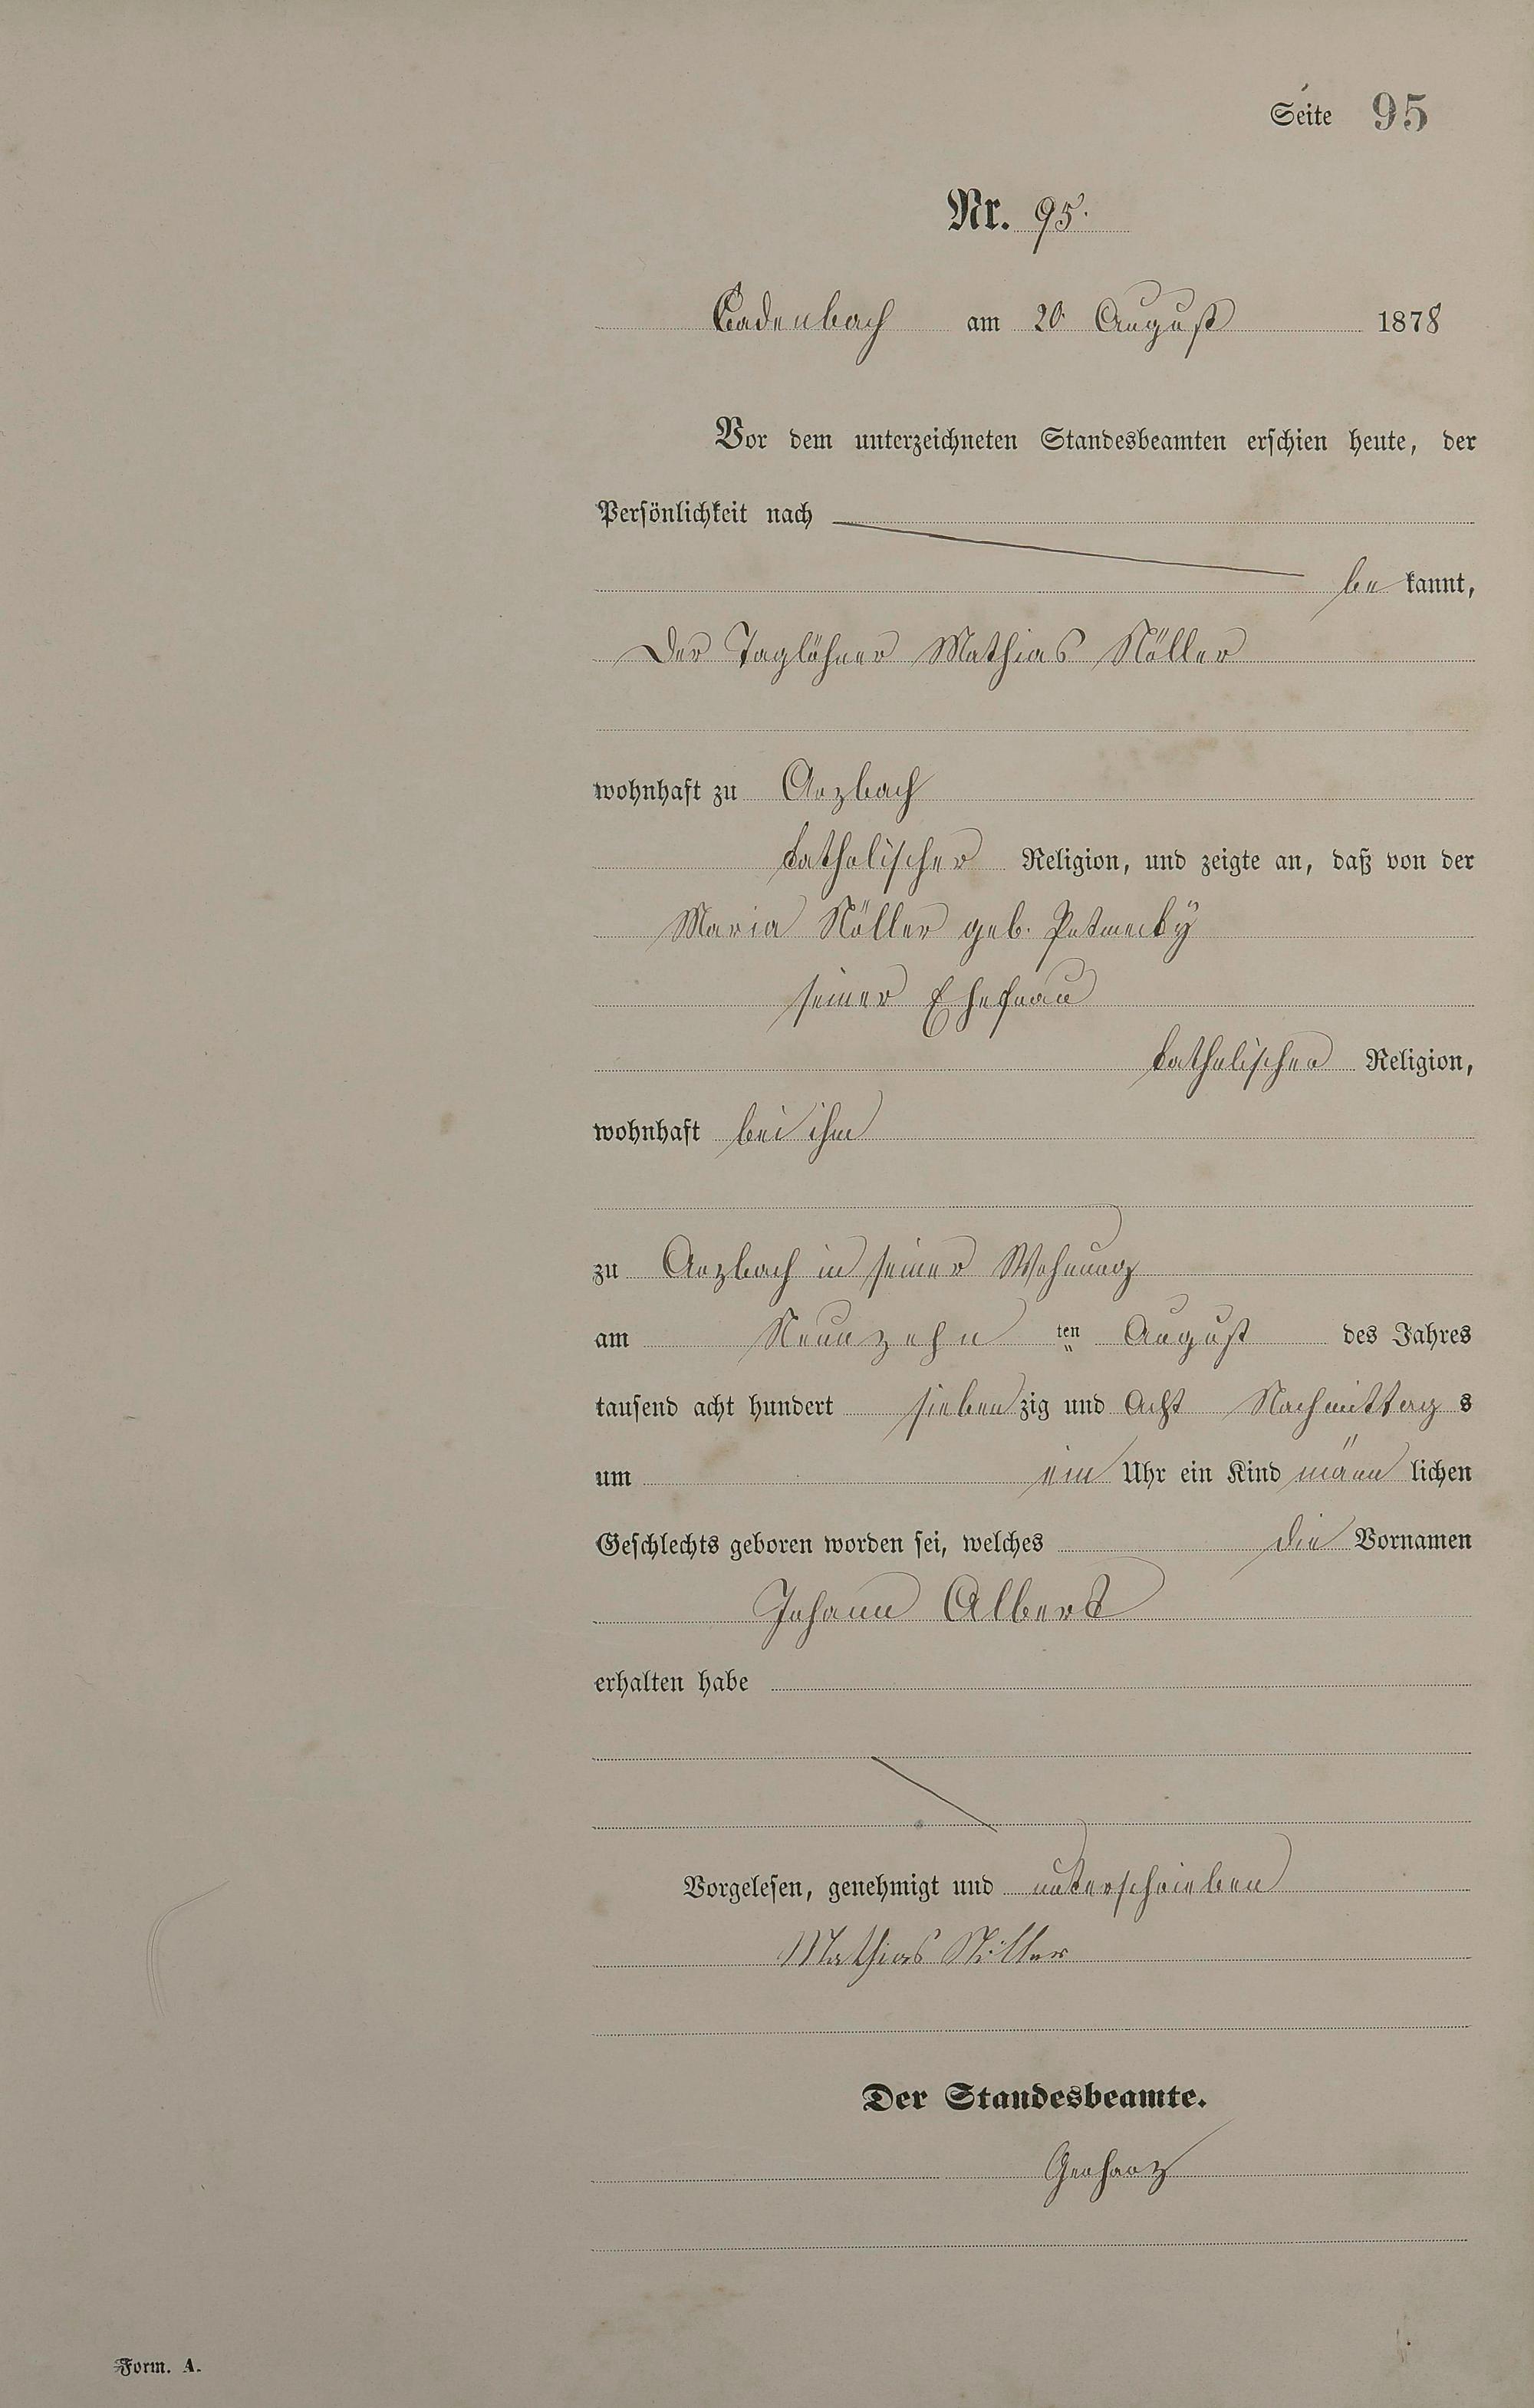 Seite 95
Nr. 95.
Cadenbach am 20 August 1878
Vor dem unterzeichneten Standesbeamten erschien heute, der
Persönlichkeit nach
be kannt,
Der Taglöhner Mathias Nöller
wohnhaft zu Arzbach
katholischer Religion, und zeigte an, daß von der
Maria Nöller geb.
seiner Ehefrau
katholischer Religion,
wohnhaft bei ihm
zu Arzbach in seiner Wohnung
am Neunzehn ten August des Jahres
tausend acht hundert sieben zig und Acht Nachmittag s
um ein Uhr ein Kind männ lichen
Geschlechts geboren worden sei, welches die Vornamen
Johann Albert
erhalten habe
Vorgelesen, genehmigt und unterschrieben
Mathias Nöller
Der Standesbeamte.
Gerharz
Form. A.